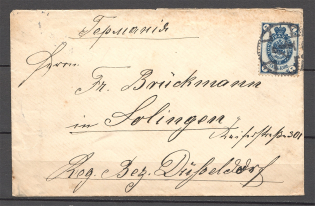 Германія
Herrn
Fr. Brückmann
in Solingen
Reg. Bez. Düsseldorf